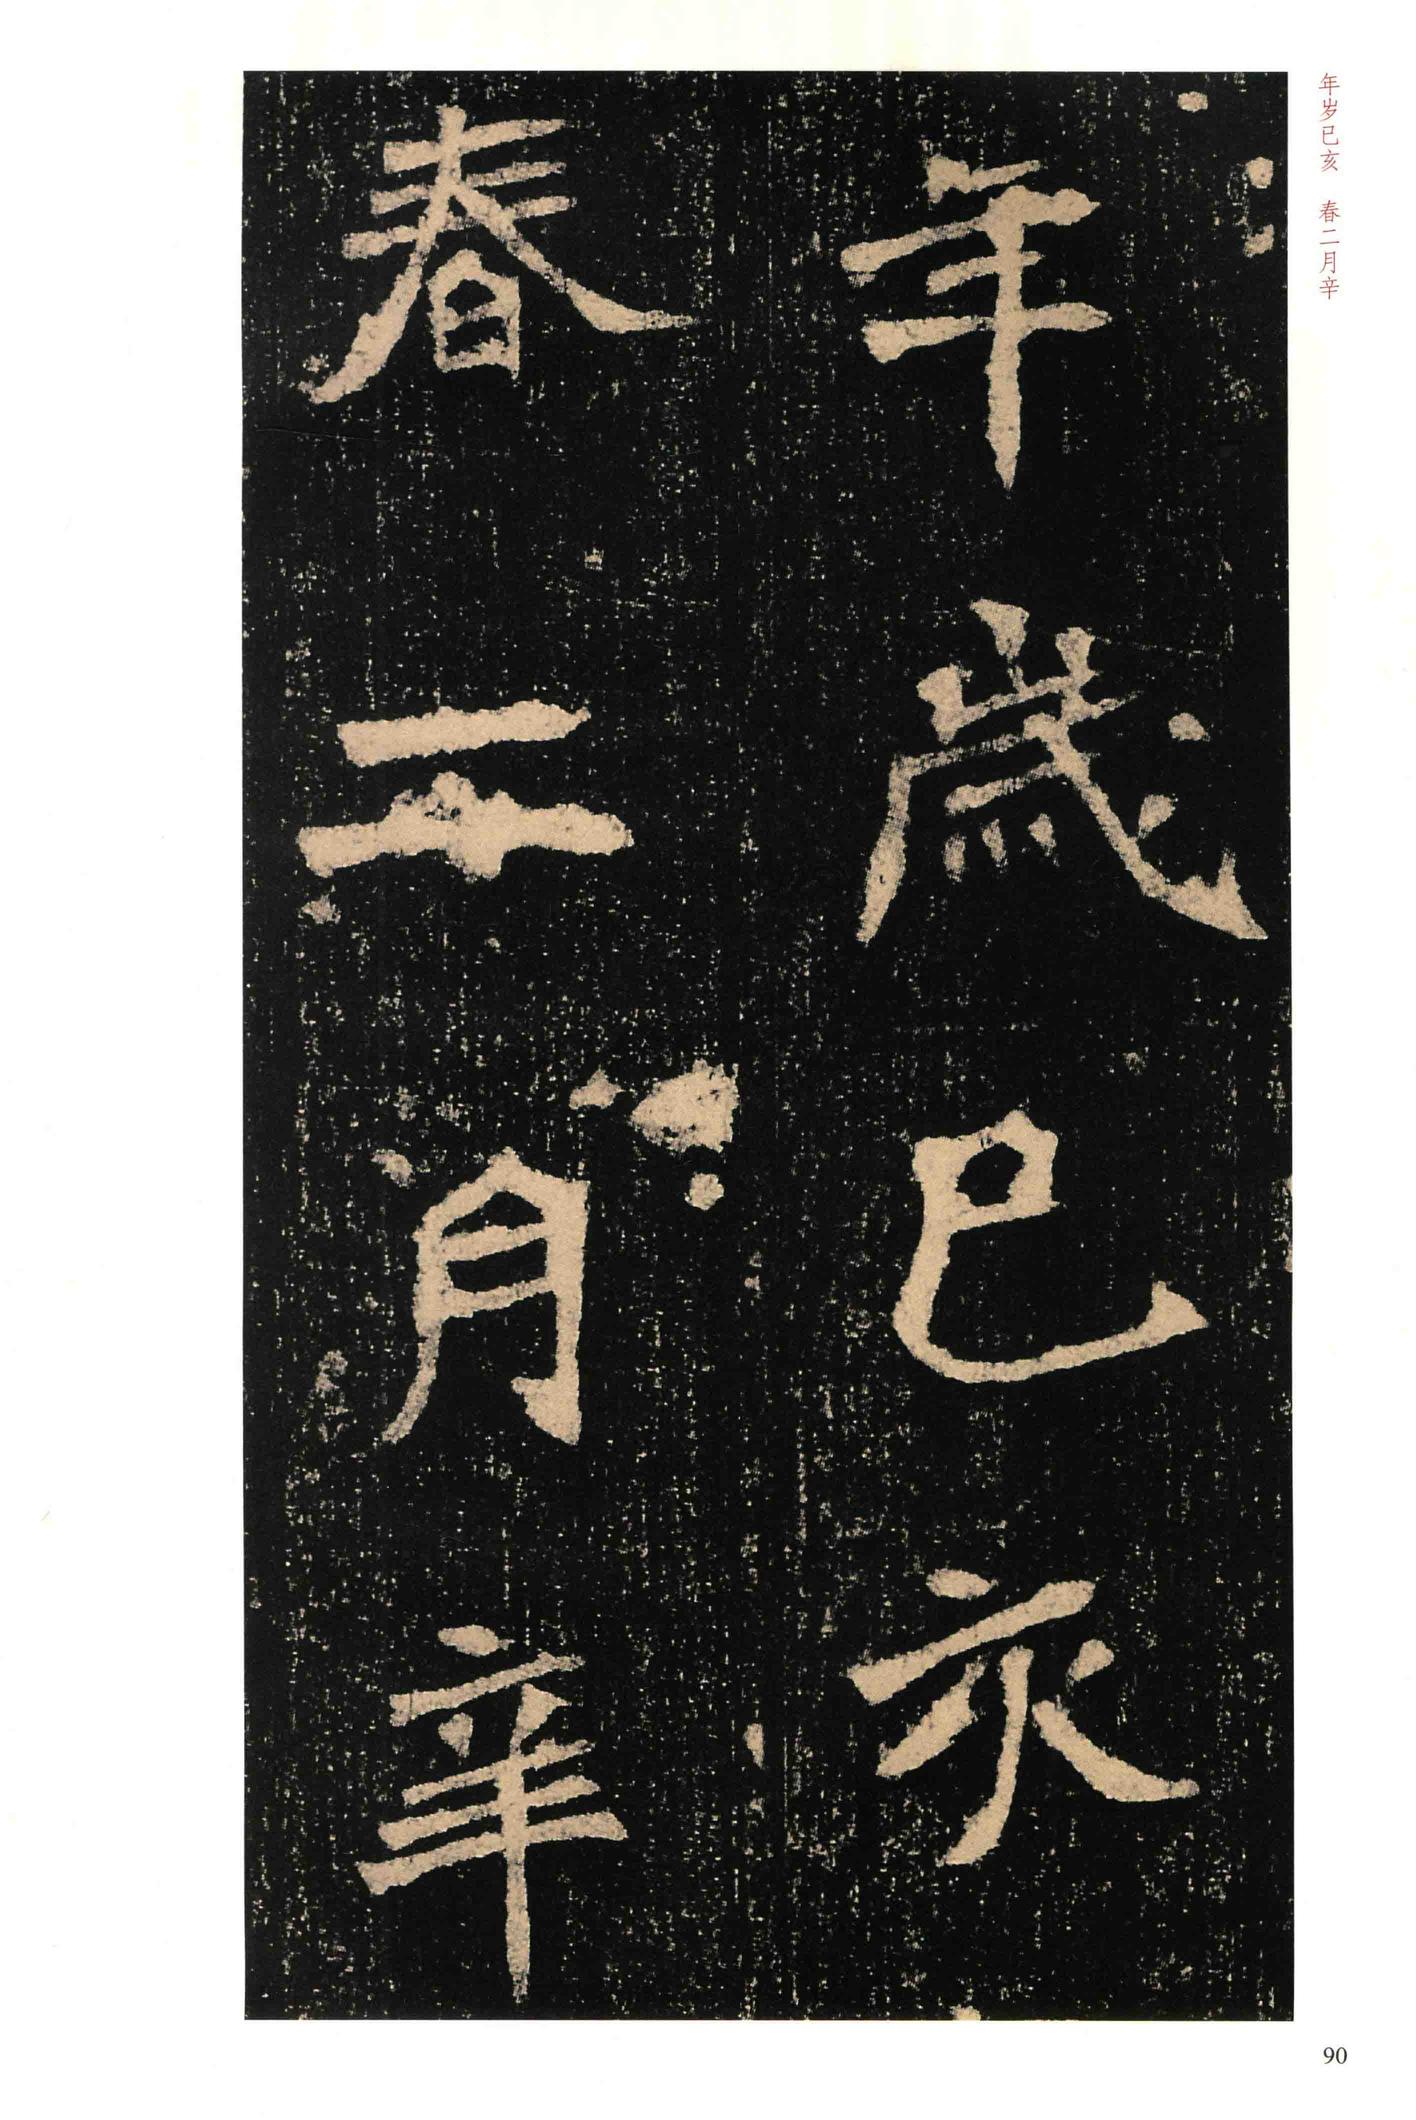 年歲巳亥
春二月辛
年岁已亥　春二月辛
90